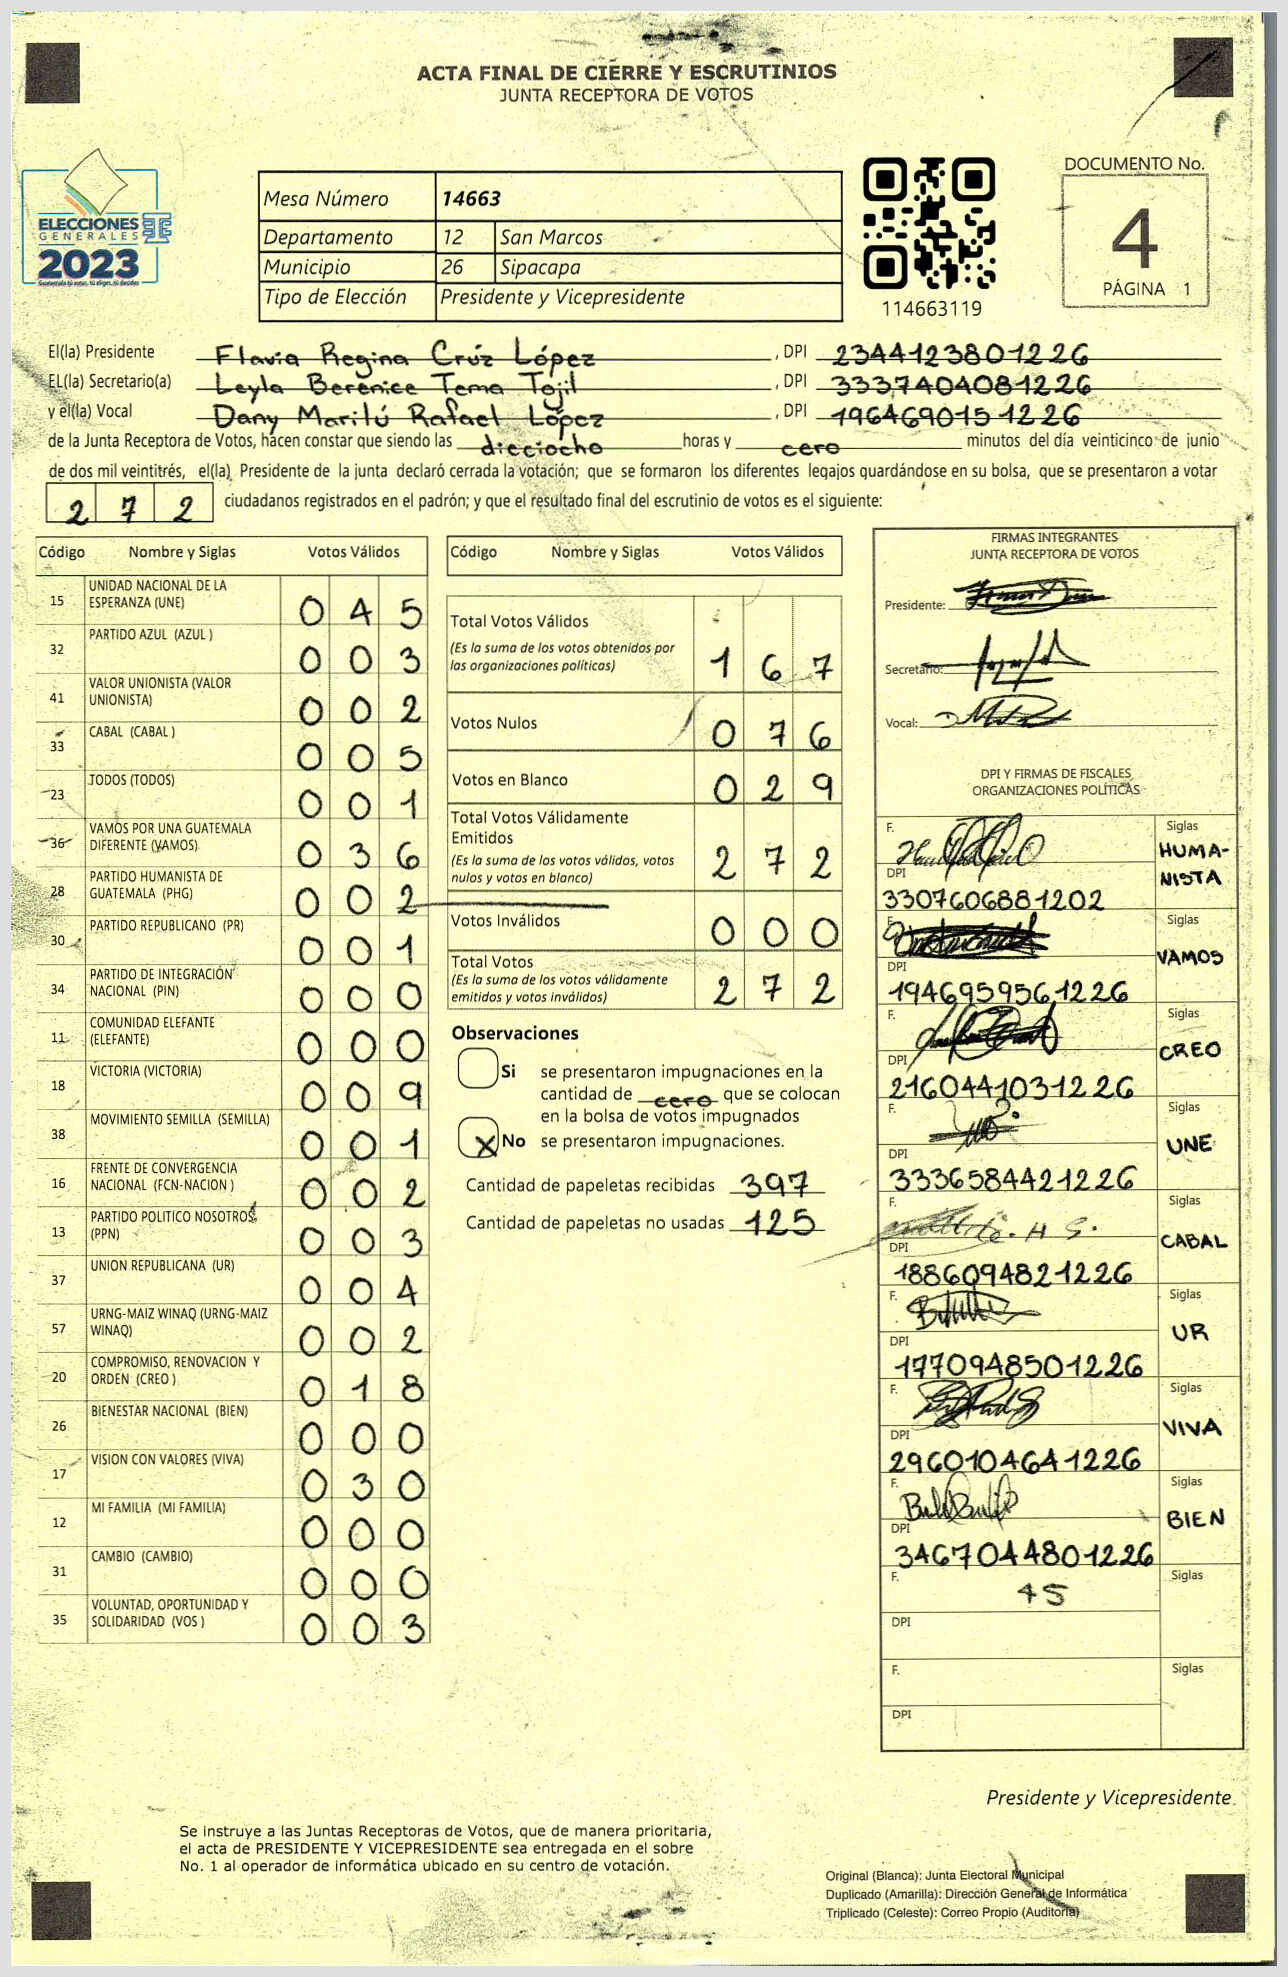 ACTA FINAL DE CIERRE Y ESCRUTINIOS
JUNTA RECEPTORA DE VOTOS
ELECCIONES
GENERALES
2023
Mesa Número 14663
Departamento 12 San Marcos
Municipio 26 Sipacapa
Tipo de Elección Presidente y Vicepresidente
114663119
DOCUMENTO No.
4
PÁGINA 1
El(la) Presidente Flavia Regina Crúz López , DPI 2344123801226
EL(la) Secretario(a) Leyla Berenice Tema Tojil , DPI 3337404081226
y el(la) Vocal Dany Marilú Rafael López , DPI 1964690151226
de la Junta Receptora de Votos, hacen constar que siendo las diecciocho horas y cero minutos del día veinticinco de junio
de dos mil veintitrés, el(la) Presidente de la junta declaró cerrada la votación; que se formaron los diferentes legajos guardándose en su bolsa, que se presentaron a votar
2 7 2 ciudadanos registrados en el padrón; y que el resultado final del escrutinio de votos es el siguiente:
Código Nombre y Siglas Votos Válidos
15 UNIDAD NACIONAL DE LA ESPERANZA (UNE) 0 4 5
32 PARTIDO AZUL (AZUL ) 0 0 3
41 VALOR UNIONISTA (VALOR UNIONISTA) 0 0 2
33 CABAL (CABAL ) 0 0 5
23 TODOS (TODOS) 0 0 1
36 VAMOS POR UNA GUATEMALA DIFERENTE (VAMOS) 0 3 6
28 PARTIDO HUMANISTA DE GUATEMALA (PHG) 0 0 2
30 PARTIDO REPUBLICANO (PR) 0 0 1
34 PARTIDO DE INTEGRACIÓN NACIONAL (PIN) 0 0 0
11 COMUNIDAD ELEFANTE (ELEFANTE) 0 0 0
18 VICTORIA (VICTORIA) 0 0 9
38 MOVIMIENTO SEMILLA (SEMILLA) 0 0 1
16 FRENTE DE CONVERGENCIA NACIONAL (FCN-NACION ) 0 0 2
13 PARTIDO POLITICO NOSOTROS (PPN) 0 0 3
37 UNION REPUBLICANA (UR) 0 0 4
57 URNG-MAIZ WINAQ (URNG-MAIZ WINAQ) 0 0 2
20 COMPROMISO, RENOVACION Y ORDEN (CREO ) 0 1 8
26 BIENESTAR NACIONAL (BIEN) 0 0 0
17 VISION CON VALORES (VIVA) 0 3 0
12 MI FAMILIA (MI FAMILIA) 0 0 0
31 CAMBIO (CAMBIO) 0 0 0
35 VOLUNTAD, OPORTUNIDAD Y SOLIDARIDAD (VOS ) 0 0 3
Código Nombre y Siglas Votos Válidos
Total Votos Válidos 1 6 7
(Es la suma de los votos obtenidos por
las organizaciones políticas)
Votos Nulos 0 7 6
Votos en Blanco 0 2 9
Total Votos Válidamente
Emitidos 2 7 2
(Es la suma de los votos válidos, votos
nulos y votos en blanco)
Votos Inválidos 0 0 0
Total Votos 2 7 2
(Es la suma de los votos válidamente
emitidos y votos inválidos)
Observaciones
Si se presentaron impugnaciones en la
cantidad de cero que se colocan
en la bolsa de votos impugnados
X No se presentaron impugnaciones.
Cantidad de papeletas recibidas 397
Cantidad de papeletas no usadas 125
FIRMAS INTEGRANTES
JUNTA RECEPTORA DE VOTOS
Presidente:
Secretario:
Vocal:
DPI Y FIRMAS DE FISCALES
ORGANIZACIONES POLÍTICAS
F. Siglas
HUMA-
NISTA
DPI
3307606881202
F. Siglas
VAMOS
DPI
1946959561226
F. Siglas
CREO
DPI
2160441031226
F. Siglas
UNE
DPI
3336584421226
F. Siglas
CABAL
DPI
1886094821226
F. Siglas
UR
DPI
1770948501226
F. Siglas
VIVA
DPI
2960104641226
F. Siglas
BIEN
DPI
3467044801226
F. 45 Siglas
DPI
F. Siglas
DPI
Presidente y Vicepresidente
Se instruye a las Juntas Receptoras de Votos, que de manera prioritaria,
el acta de PRESIDENTE Y VICEPRESIDENTE sea entregada en el sobre
No. 1 al operador de informática ubicado en su centro de votación.
Original (Blanca): Junta Electoral Municipal
Duplicado (Amarilla): Dirección General de Informática
Triplicado (Celeste): Correo Propio (Auditoría)